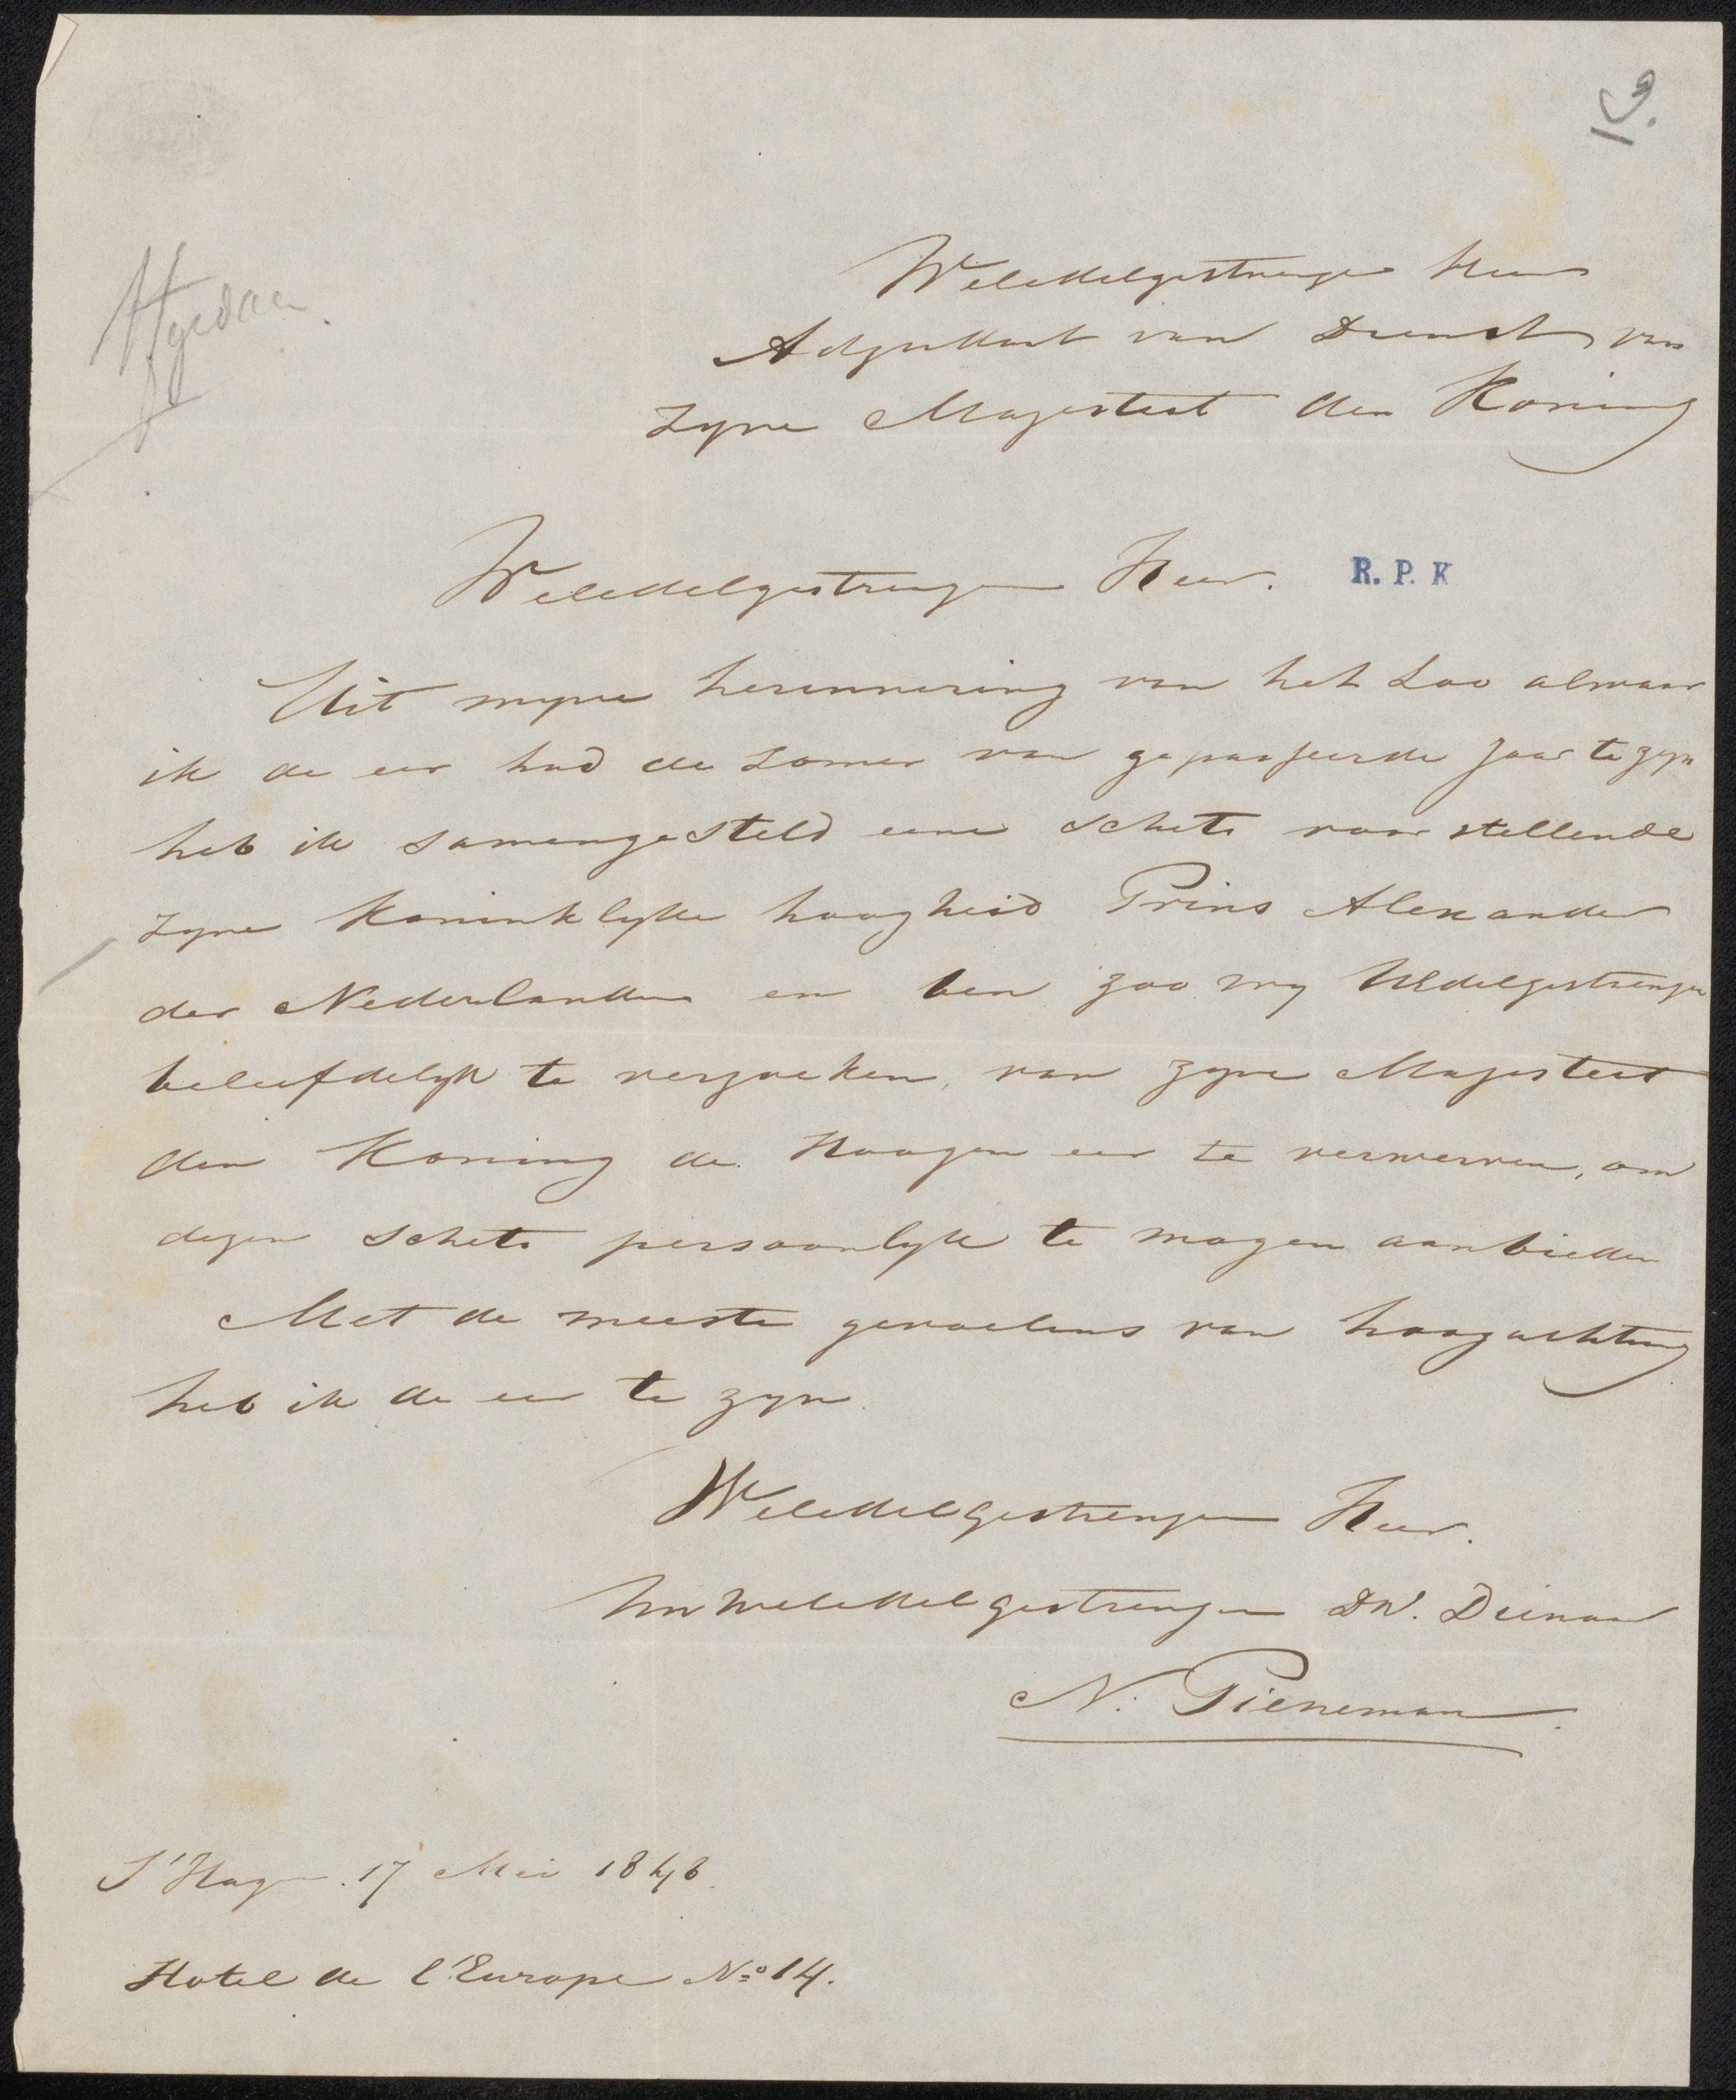 Weledelgestrenge Heer
Adjudant van Dienst van
Zyne Majesteit den Koning
Weledelgestrengen Heer. R. P. K
Uit myne herinnering van het Loo alwaar
ik de eer had de Zomer van gepasseerde Jaar te zyn
heb ik samengesteld eene schets voorstellende
Zyne Koninklyke hoogheid Prins Alexander
der Nederlanden en ben zoo vry UEdelgestrengen
beleefdelyk te verzoeken, van zyne Majesteit
den Koning de Hoogen eer te verwerven, om
dezen schets persoonlyk te mogen aanbieden
Met de meeste gevoelens van hoogachting
heb ik de eer te zyn
Weledelgestrengen Heer.
Uw weledelgestrengen DW. Dienaar
N. Pieneman
S'Hage. 17 Mei 1848.
Hotel de l'Europe No 14.